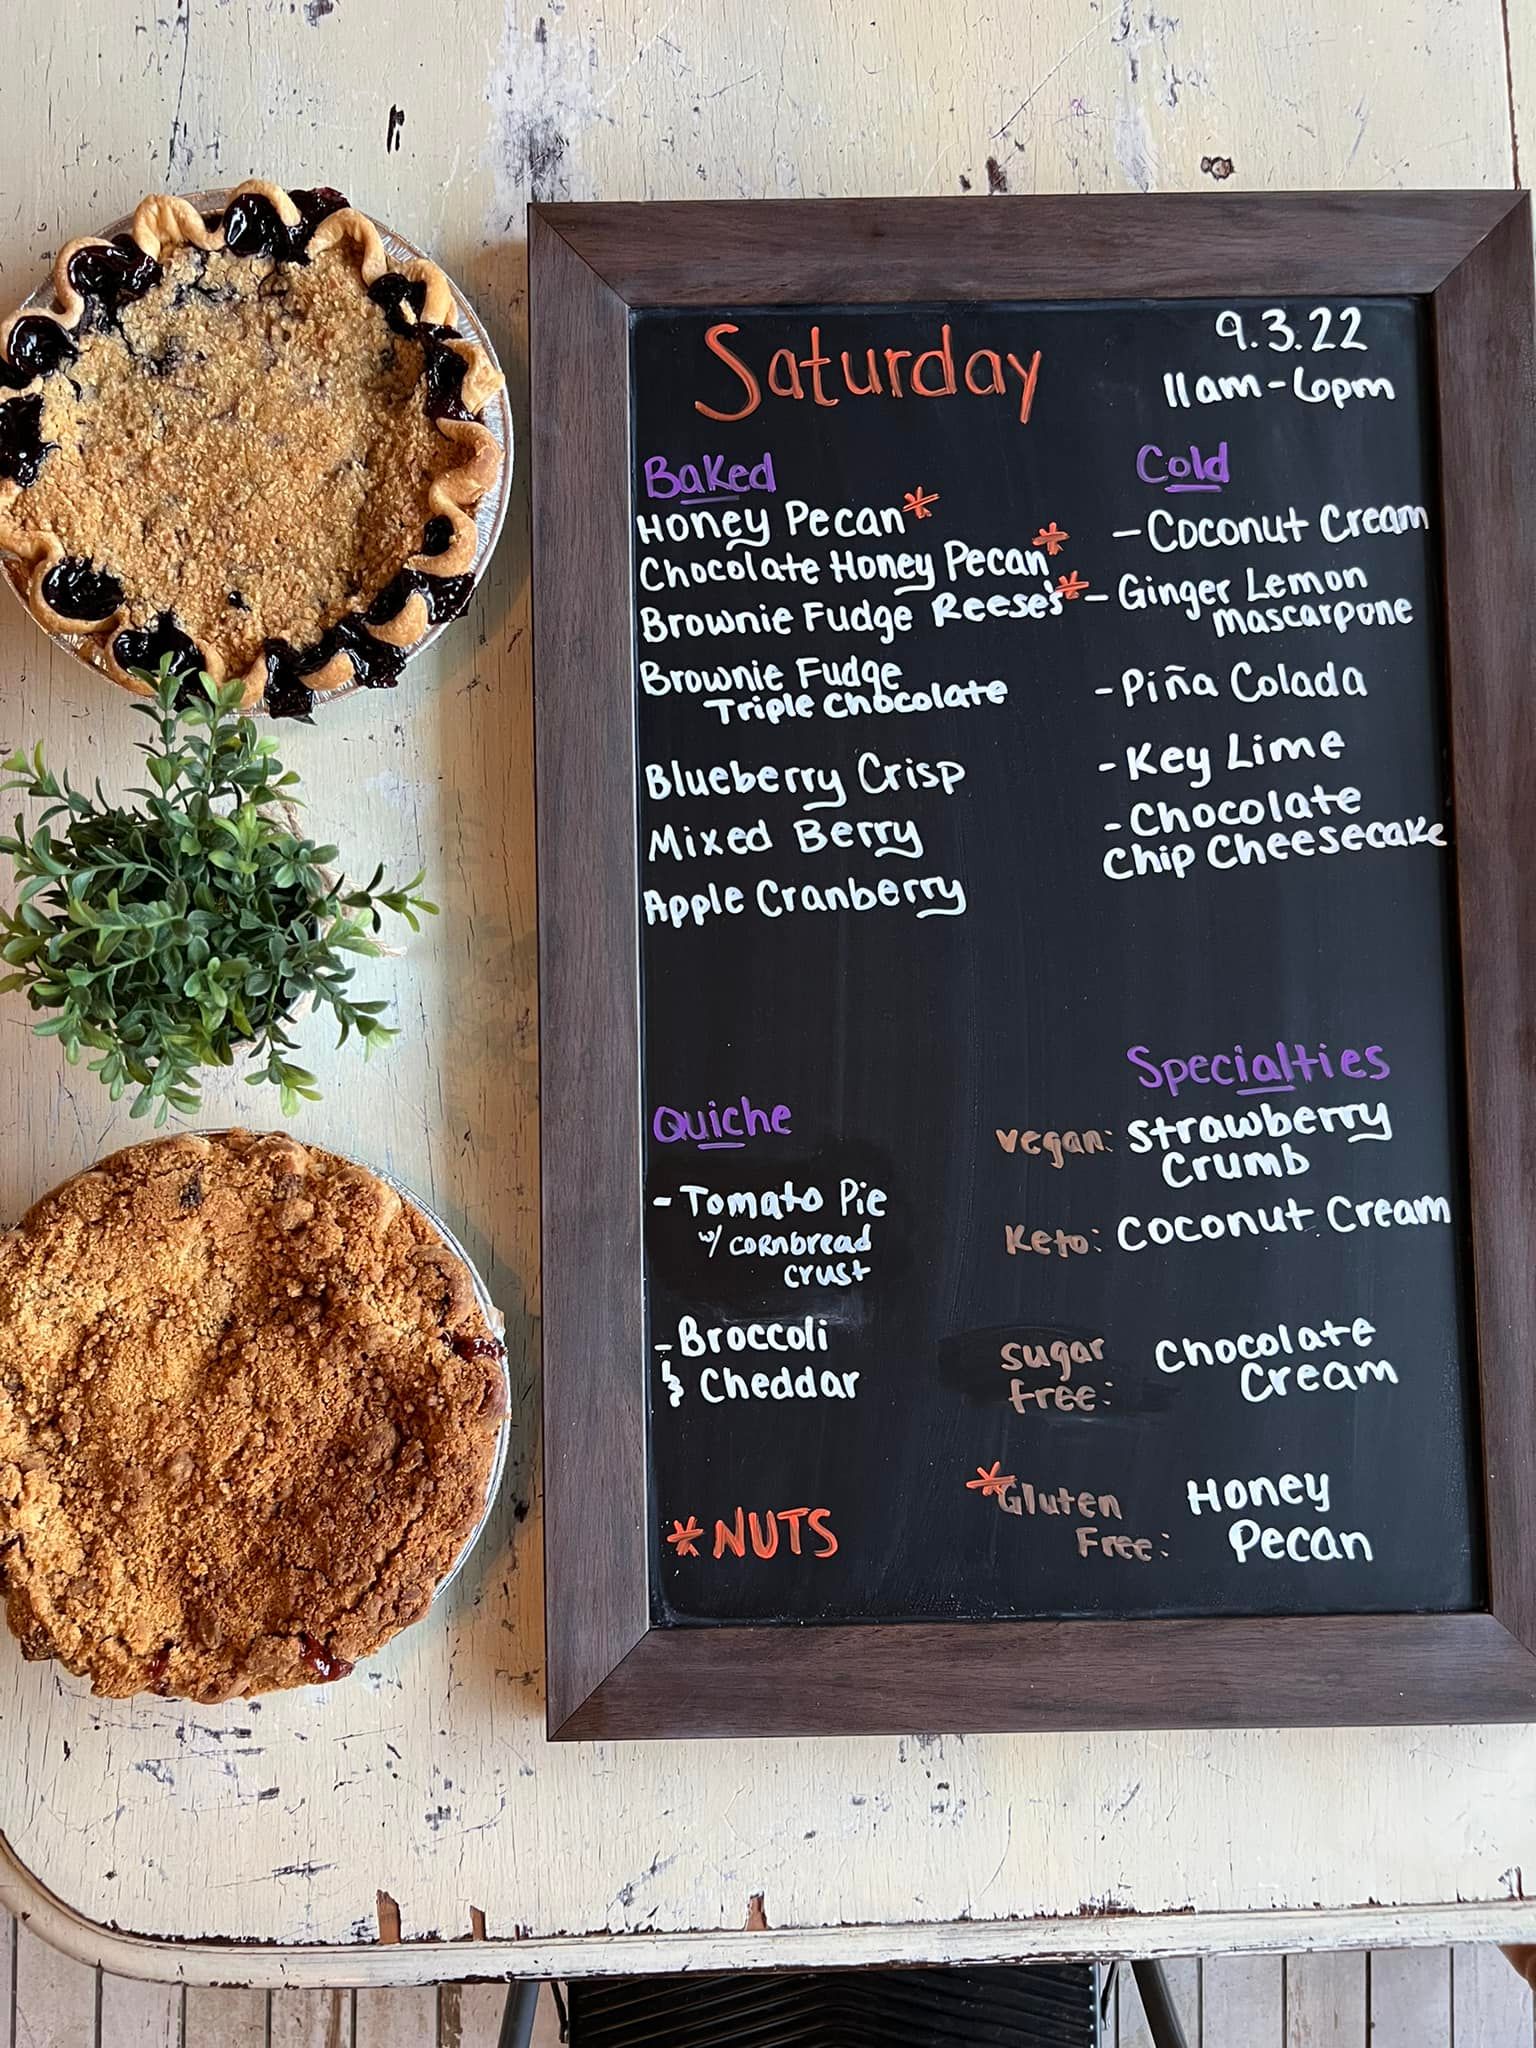 Saturday
9.3.22
11am-6pm
Baked
Honey Pecan*
Chocolate Honey Pecan*
Brownie Fudge Reese's*
Brownie Fudge
Triple Chocolate
Blueberry Crisp
Mixed Berry
Apple Cranberry
Cold
- Coconut Cream
- Ginger Lemon
Mascarpone
- Piña Colada
- Key Lime
- Chocolate
Chip Cheesecake
Quiche
- Tomato Pie
w/ cornbread
crust
- Broccoli
& Cheddar
*NUTS
Specialties
vegan: Strawberry
Crumb
Keto: Coconut Cream
sugar free: Chocolate
Cream
*Gluten Free: Honey
Pecan